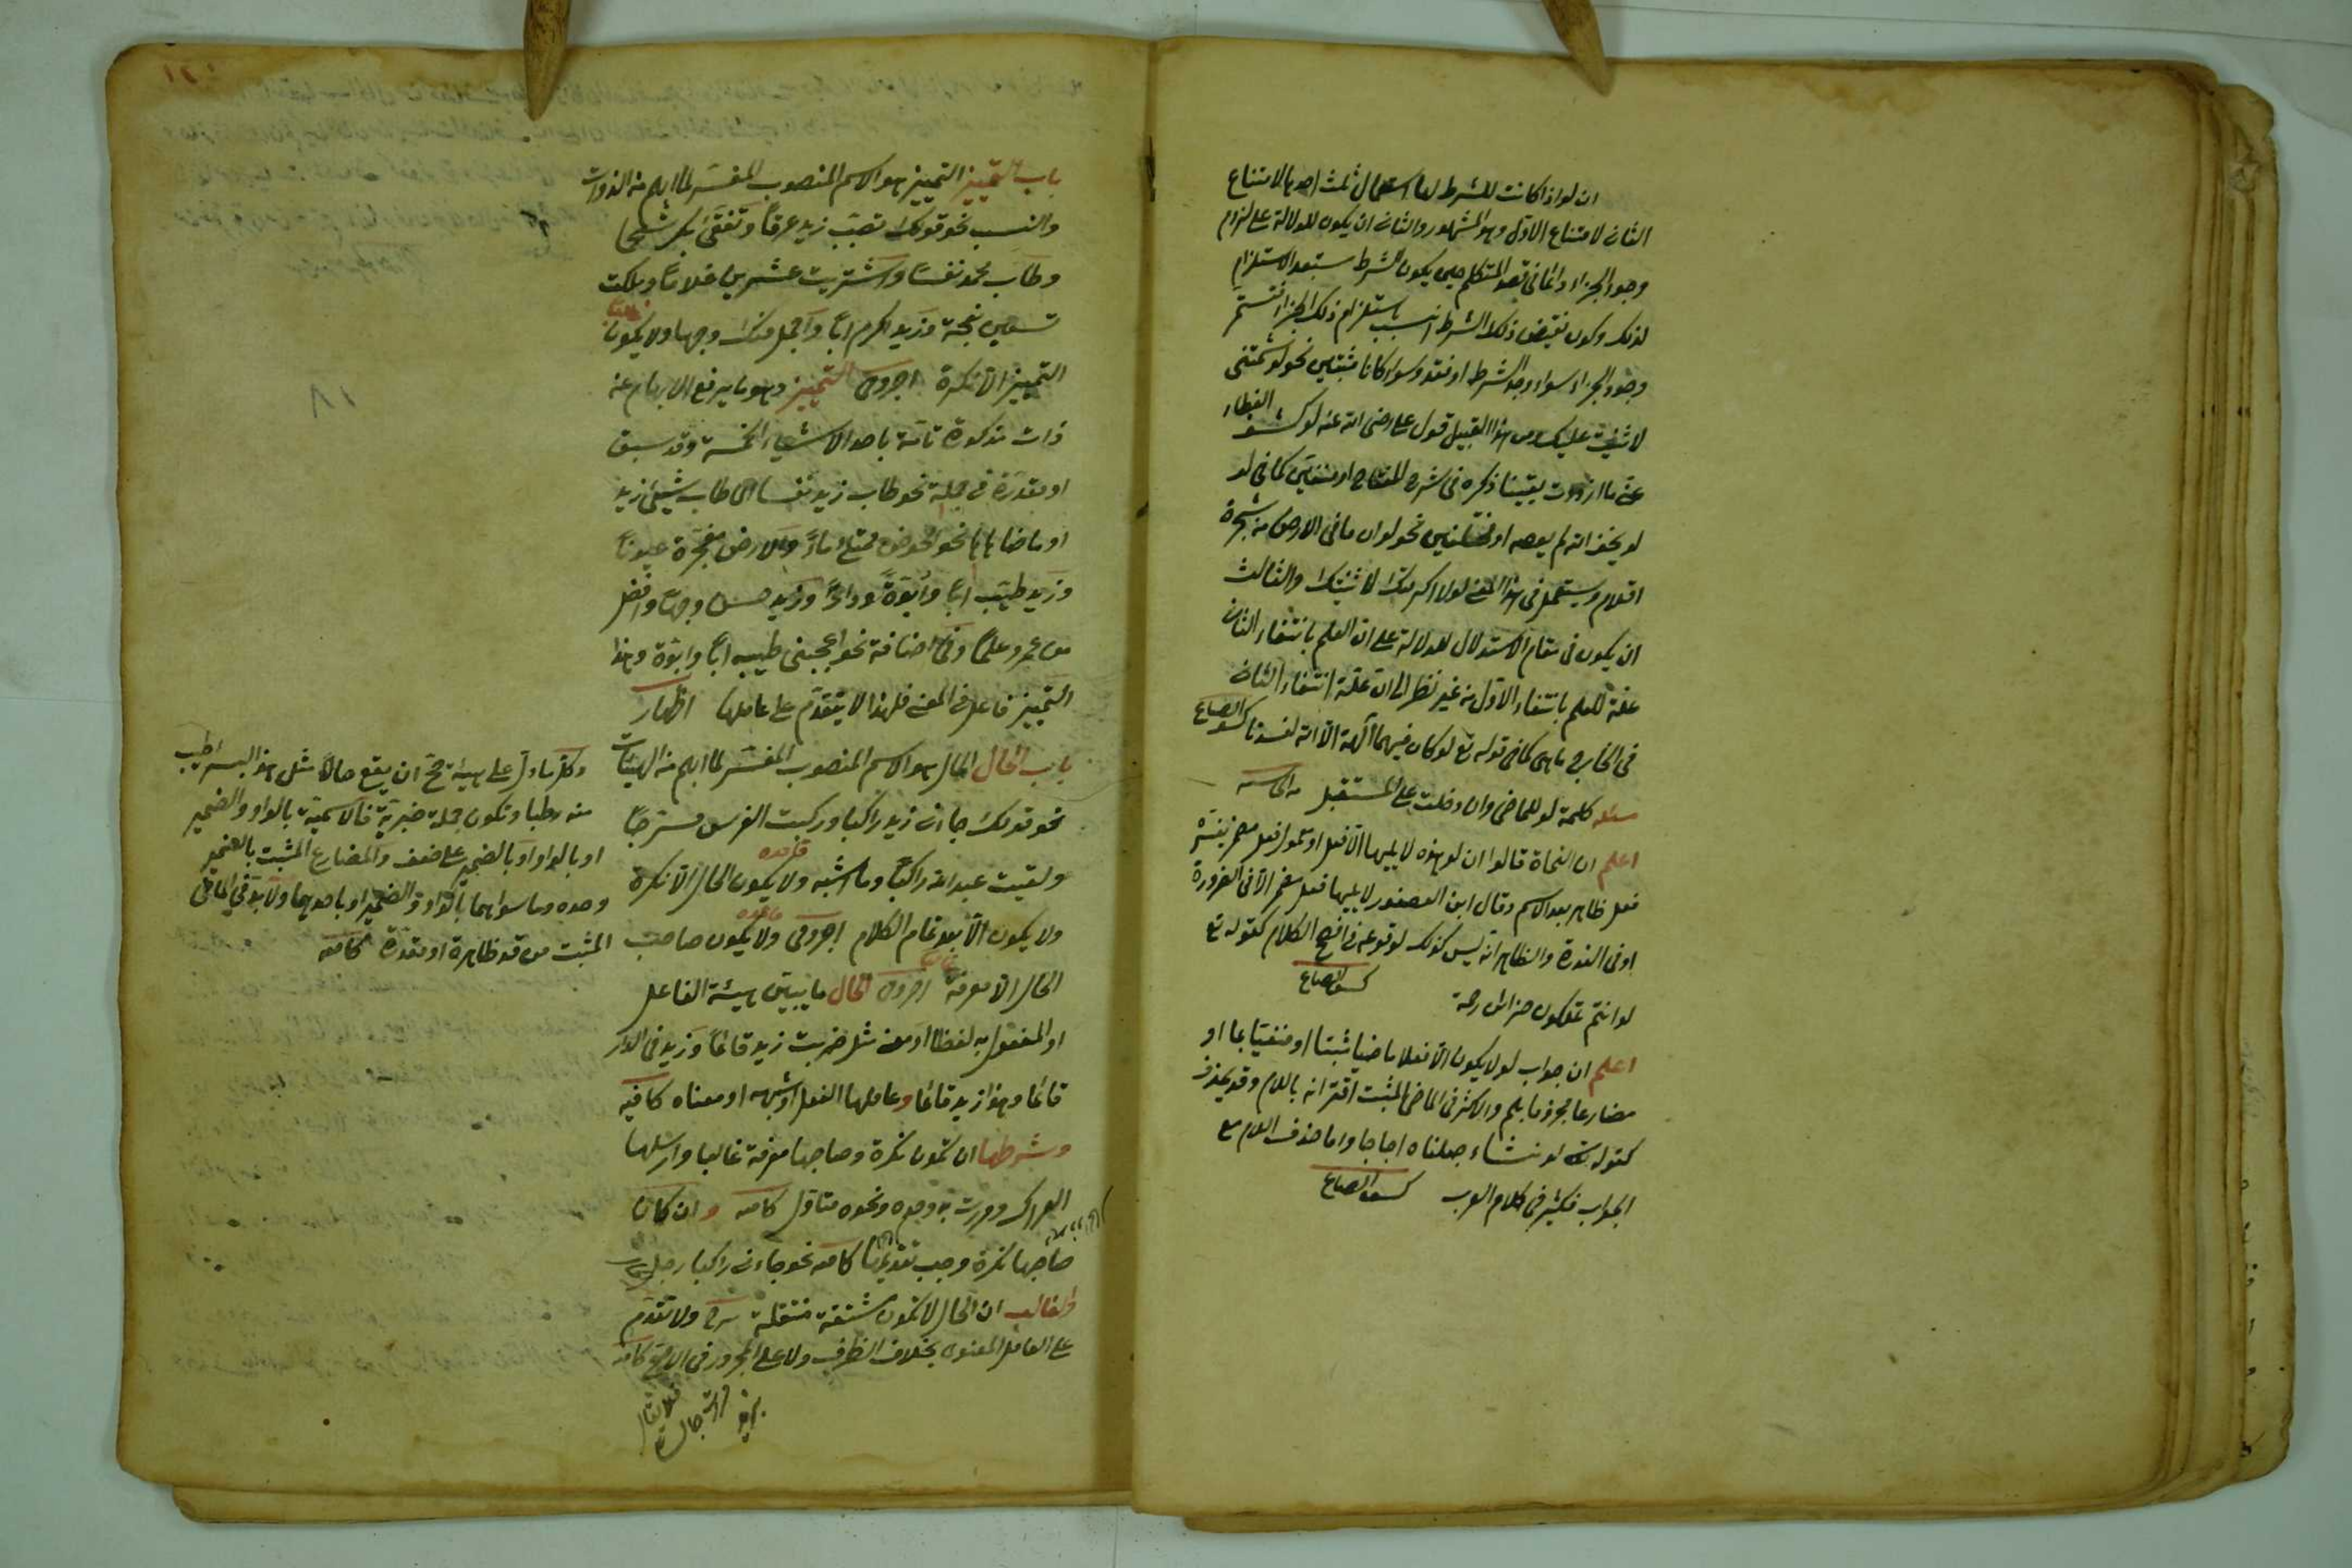 ان لو اذا كانت للشرط لها استعمال ثلث احدها لامتناع
الثانى لامتناع الاول وهو المشهور والثانى ان يكون للدلالة على لزوم
وجود الجزاء دائما فى قصد المتكلم حين يكون الشرط يستبعد الاستلزام
لذلك وكون نقيض ذلك الشرط انسب باستلزام ذلك الجزاء فتستمر
وجود الجزاء سواء وجد الشرط او فقد وسواء كانا مثبتين نحو لو شتمتنى
لاثنيت عليك ومن هذا القبيل قول على رضى الله عنه لو كشف الغطاء
عنى ما ازددت يقينا ذكره فى شرح المفتاح او منفيين كما فى لو
لو يخف الله لم يعصه او مختلفين نحو لو ان ما فى الارض من شجرة
اقلام ويستعمل فى هذا المعنى لولا اكرمتك لاثنيتك والثالث
ان يكون فى مقام الاستدلال للدلالة على ان العلم بانتفاء الثانى
علة للعلم بانتفاء الاول من غير نظر الى ان علة انتفاء الثانى
فى الخارج ما هى كما فى قوله تع لو كان فيهما آلهة الا الله لفسدتا
مسئله كلمة لو للماضى وان دخلت على المستقبل
اعلم ان النحاة قالوا ان لو هذه لا يليها الا فعل او معمول فعل مضمر يفسره
فعل ظاهر بعد الاسم وقال ابن العصفور لا يليها فعل مضمر الا فى الضرورة
او فى الندرة والظاهر انه ليس كذلك لوقوعه فى افصح الكلام كقوله تع
لو انتم تملكون خزائن رحمة
اعلم ان جواب لو لا يكون الا فعلا ماضيا مثبتا او منفيا بما او
مضارعا مجزوما بلم والاكثر فى الماضى المثبت اقترانه باللام وقد يحذف
كقوله تع لو نشاء جعلناه اجاجا واما حذف اللام مع
الجواب فكثير فى كلام العرب
باب التمييز التمييز هو الاسم المنصوب المفسر لما ابهم من الذوات
والنسب نحو قولك تصبب زيد عرقا وتفقى بكر شحما
وطاب محمد نفسا واشتريت عشرين غلاما وملكت
تسعين نعجة وزيد اكرم ابا واجمل منك وجها ولا يكون
التمييز الا نكرة اجرومى التمييز وهو ما يرفع الابهام عن
ذات مذكورة تامة باحد الاشياء الخمسة وقد سبق
او مقدرة فى جملة نحو طاب زيد نفسا اى طاب شيئ زيد
او ما ضاهاها نحو الحوض ممتلئ ماء والارض مفجرة عيونا
وزيد طيب ابا وابوة ودارا وزيد حسن وجها وافضل
من عمرو علما وفى اضافة نحو اعجبنى طيبه ابا وابوة وهذا
التمييز فاعل فى المعنى فلهذا لا يتقدم على عاملها اظهار
باب الحال الحال هو الاسم المنصوب المفسر لما ابهم من الهيئات
نحو قولك جاءنى زيد راكبا وركبت الفرس مسرجا
ولقيت عبد الله راكبا وما اشبه ولا يكون الحال الا نكرة
ولا يكون الا بعد تمام الكلام اجرومى ولا يكون صاحب
الحال الا معرفة اجرومى الحال ما يبين هيئة الفاعل
او المفعول به لفظا او معنى مثل ضربت زيد قائما وزيد فى الدار
قائما وهذا زيد قائما وعاملها الفعل او شبهه او معناه كافيه
وشرطها ان تكون نكرة وصاحبها معرفة غالبا وارسلها
العراك ومررت به وحده ونحوه متاول كافيه وان كان
صاحبها نكرة وجب تقديمها كافيه نحو جاءنى راكبا رجل
والغالب ان الحال لا تكون مشتقة منتقلة شرح ولا تتقدم
على العامل المعنوى بخلاف الظرف ولا على المجرور فى الاصح كافيه
وكل ما دل على هيئة صح ان يقع حالا مثل هذا بسرا اطيب
منه رطبا وتكون جملة خبرية فالاسمية بالواو والضمير
او بالواو او بالضمير على ضعف والمضارع المثبت بالضمير
وحده وما سواهما بالواو والضمير او باحدهما ولا بد فى الماضى
المثبت من قد ظاهرة او مقدرة كافيه